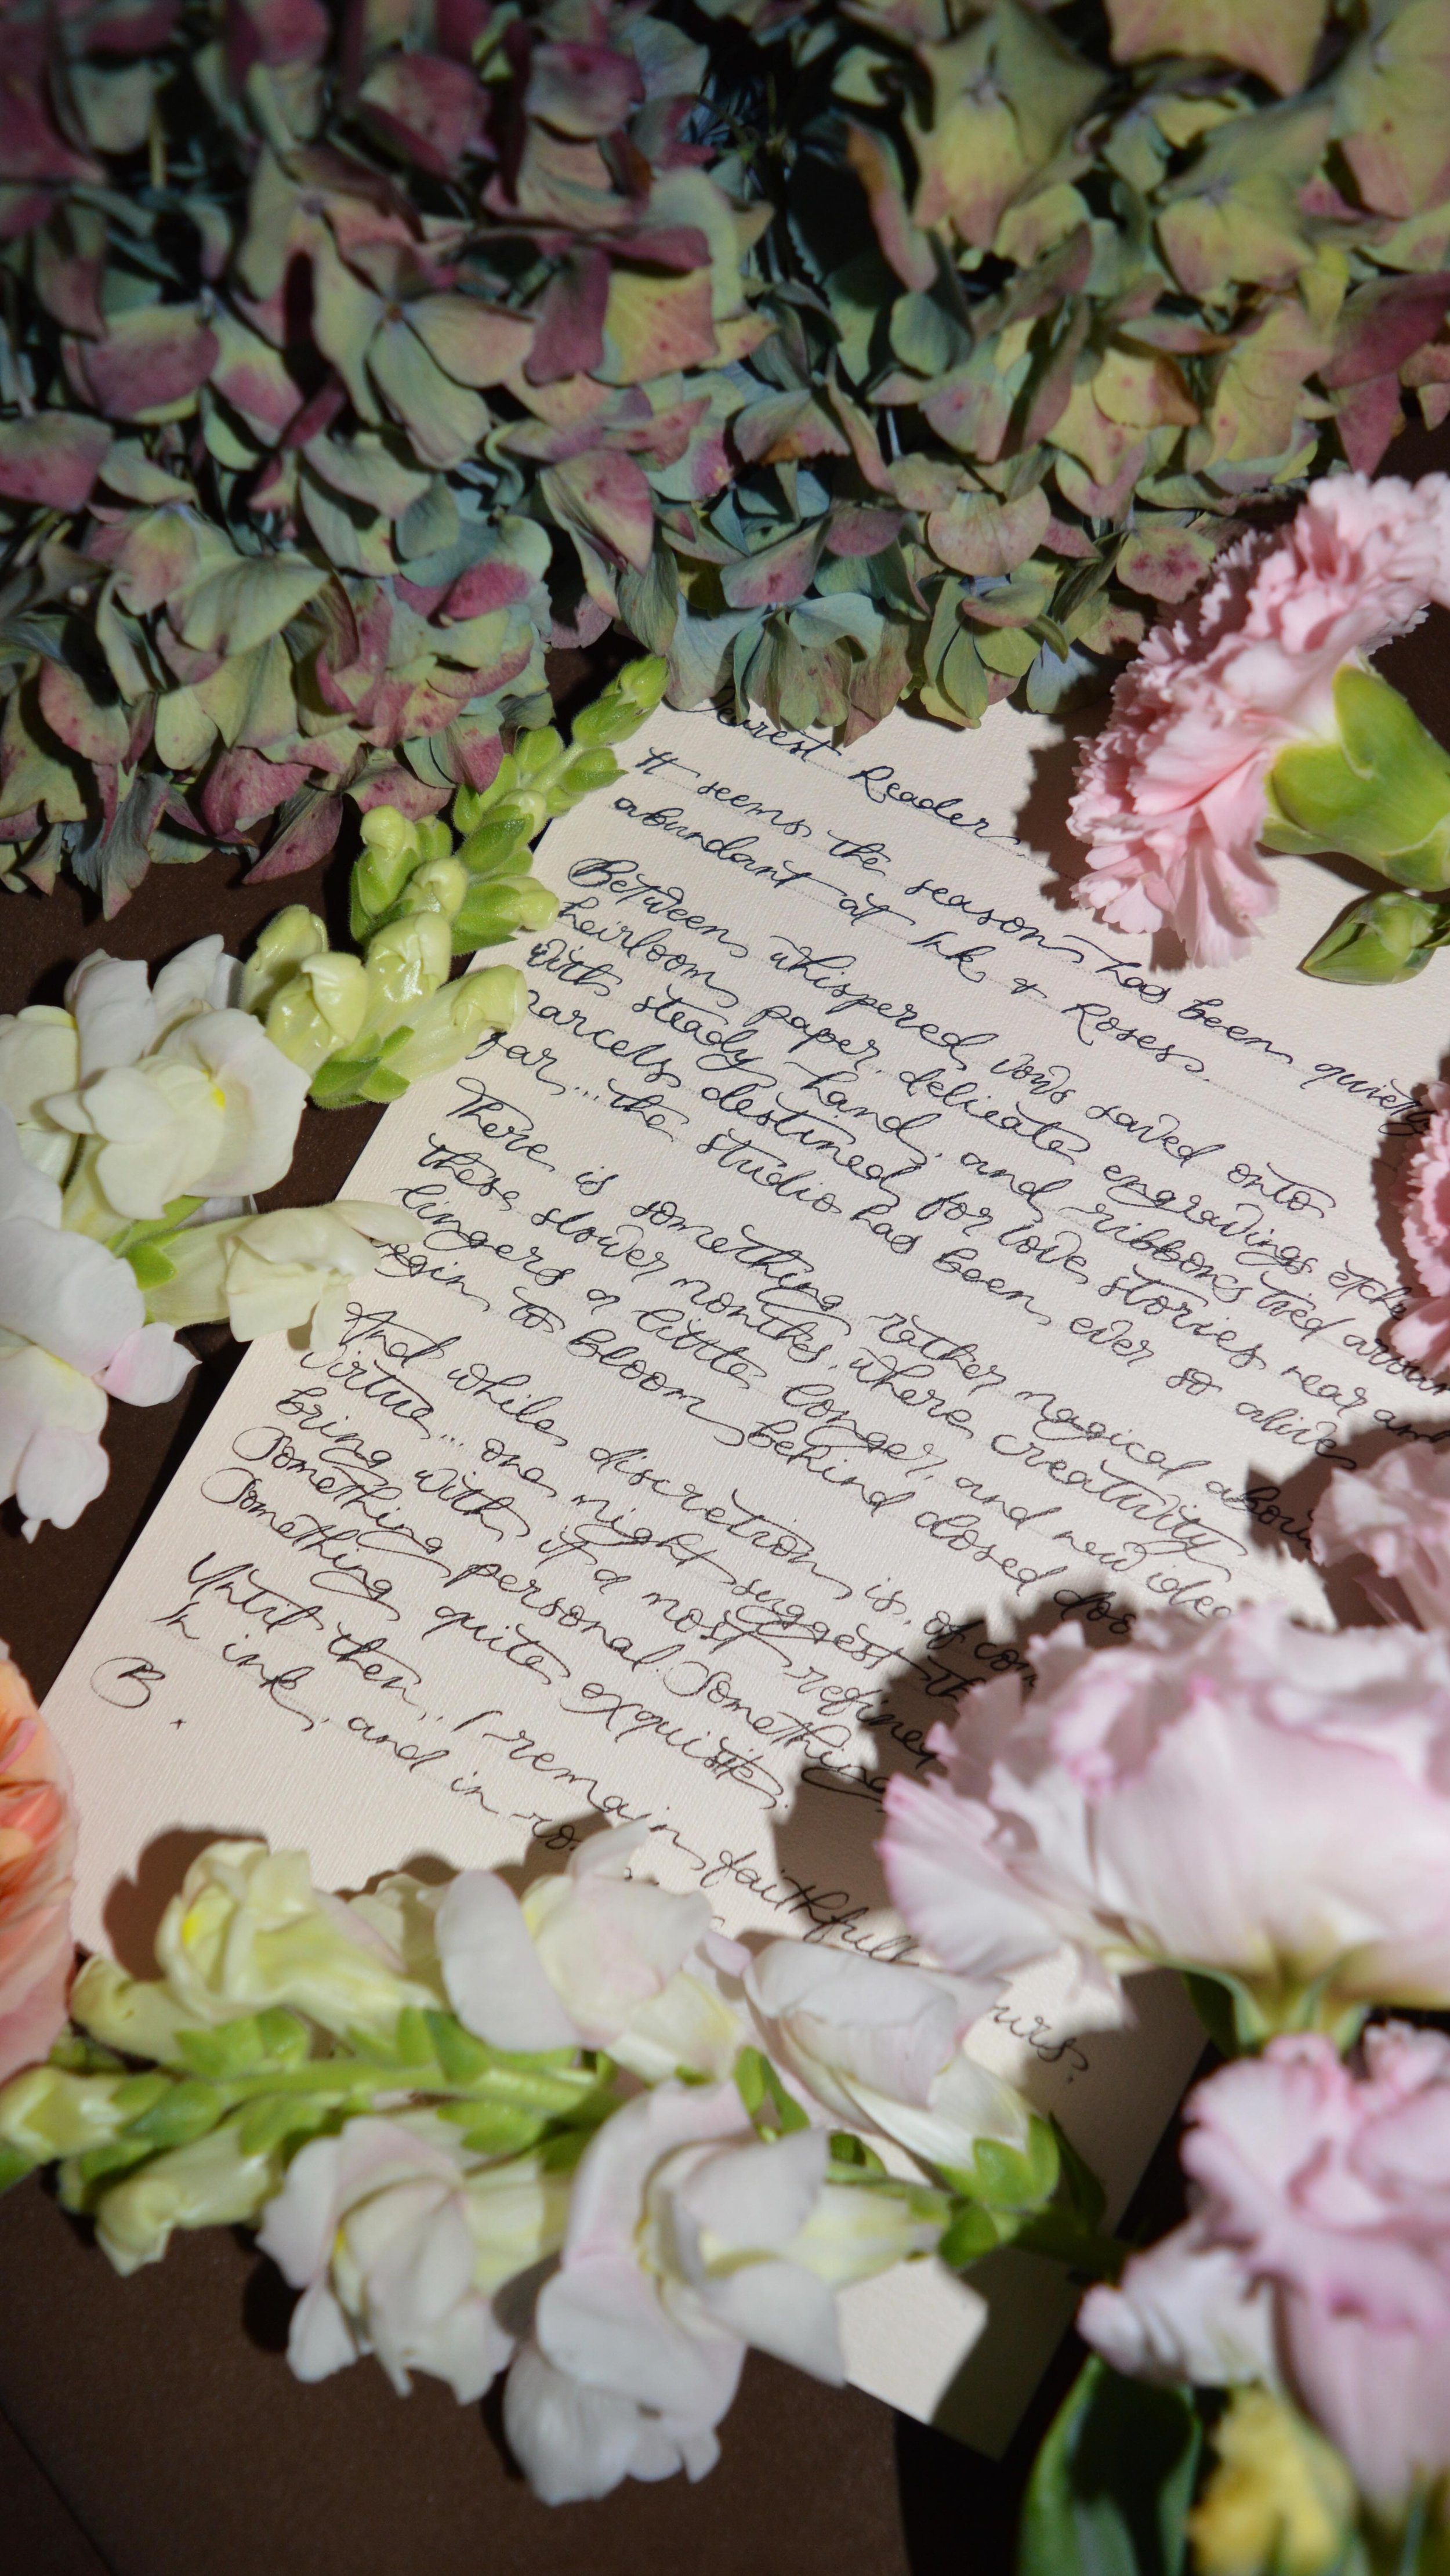 Dearest Reader,
It seems the season has been quietly
abundant at Ink & Roses.
Between whispered vows saved onto
heirloom paper, delicate engravings etche
with steady hand, and ribbons tied aroun
parcels destined for love stories near and
far... the studio has been ever so alive
There is something rather magical abou
these slower months, where creativity
lingers a little longer, and new idea
begin to bloom behind closed doo
And while discretion is, of cou
virtue... one might suggest th
bring with it a most refine
Something personal. Something
Something quite exquisite.
Until then, I remain faithfully yours,
In ink, and in ro
B.